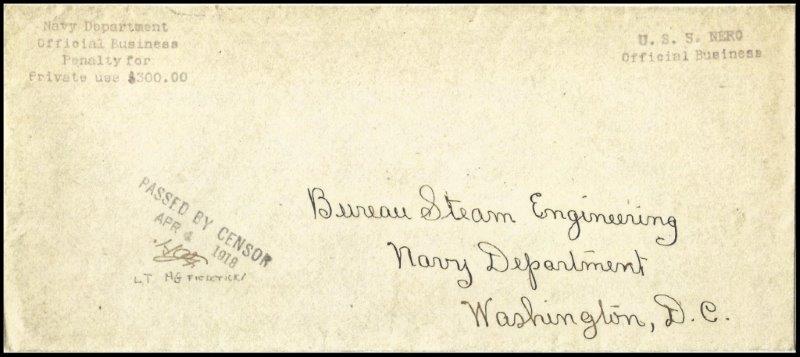 Navy Department
Official Business
Penalty for
Private use $300.00
U. S. S. NERO
Official Business
PASSED BY CENSOR
APR 1918
LT
Bureau Steam Engineering
Navy Department
Washington, D.C.